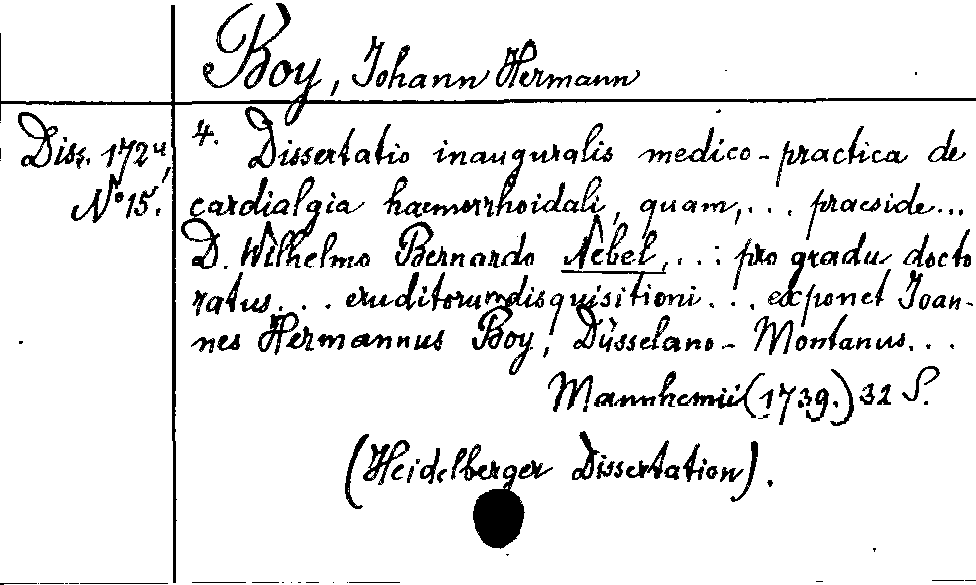 Boy, Johann Hermann
Diss. 172 4,
No 15.
4. Dissertatio inauguralis medico-practica de
cardialgia haemorrhoidali, quam,... praeside...
D. Wilhelmo Bernardo Nebel,... pro gradu docto
ratus... eruditorum disquisitioni... exponet Joan-
nes Hermannus Boy, Düsselano-Montanus...
Mannhemii (1739.) 32 S.
(Heidelberger Dissertation).